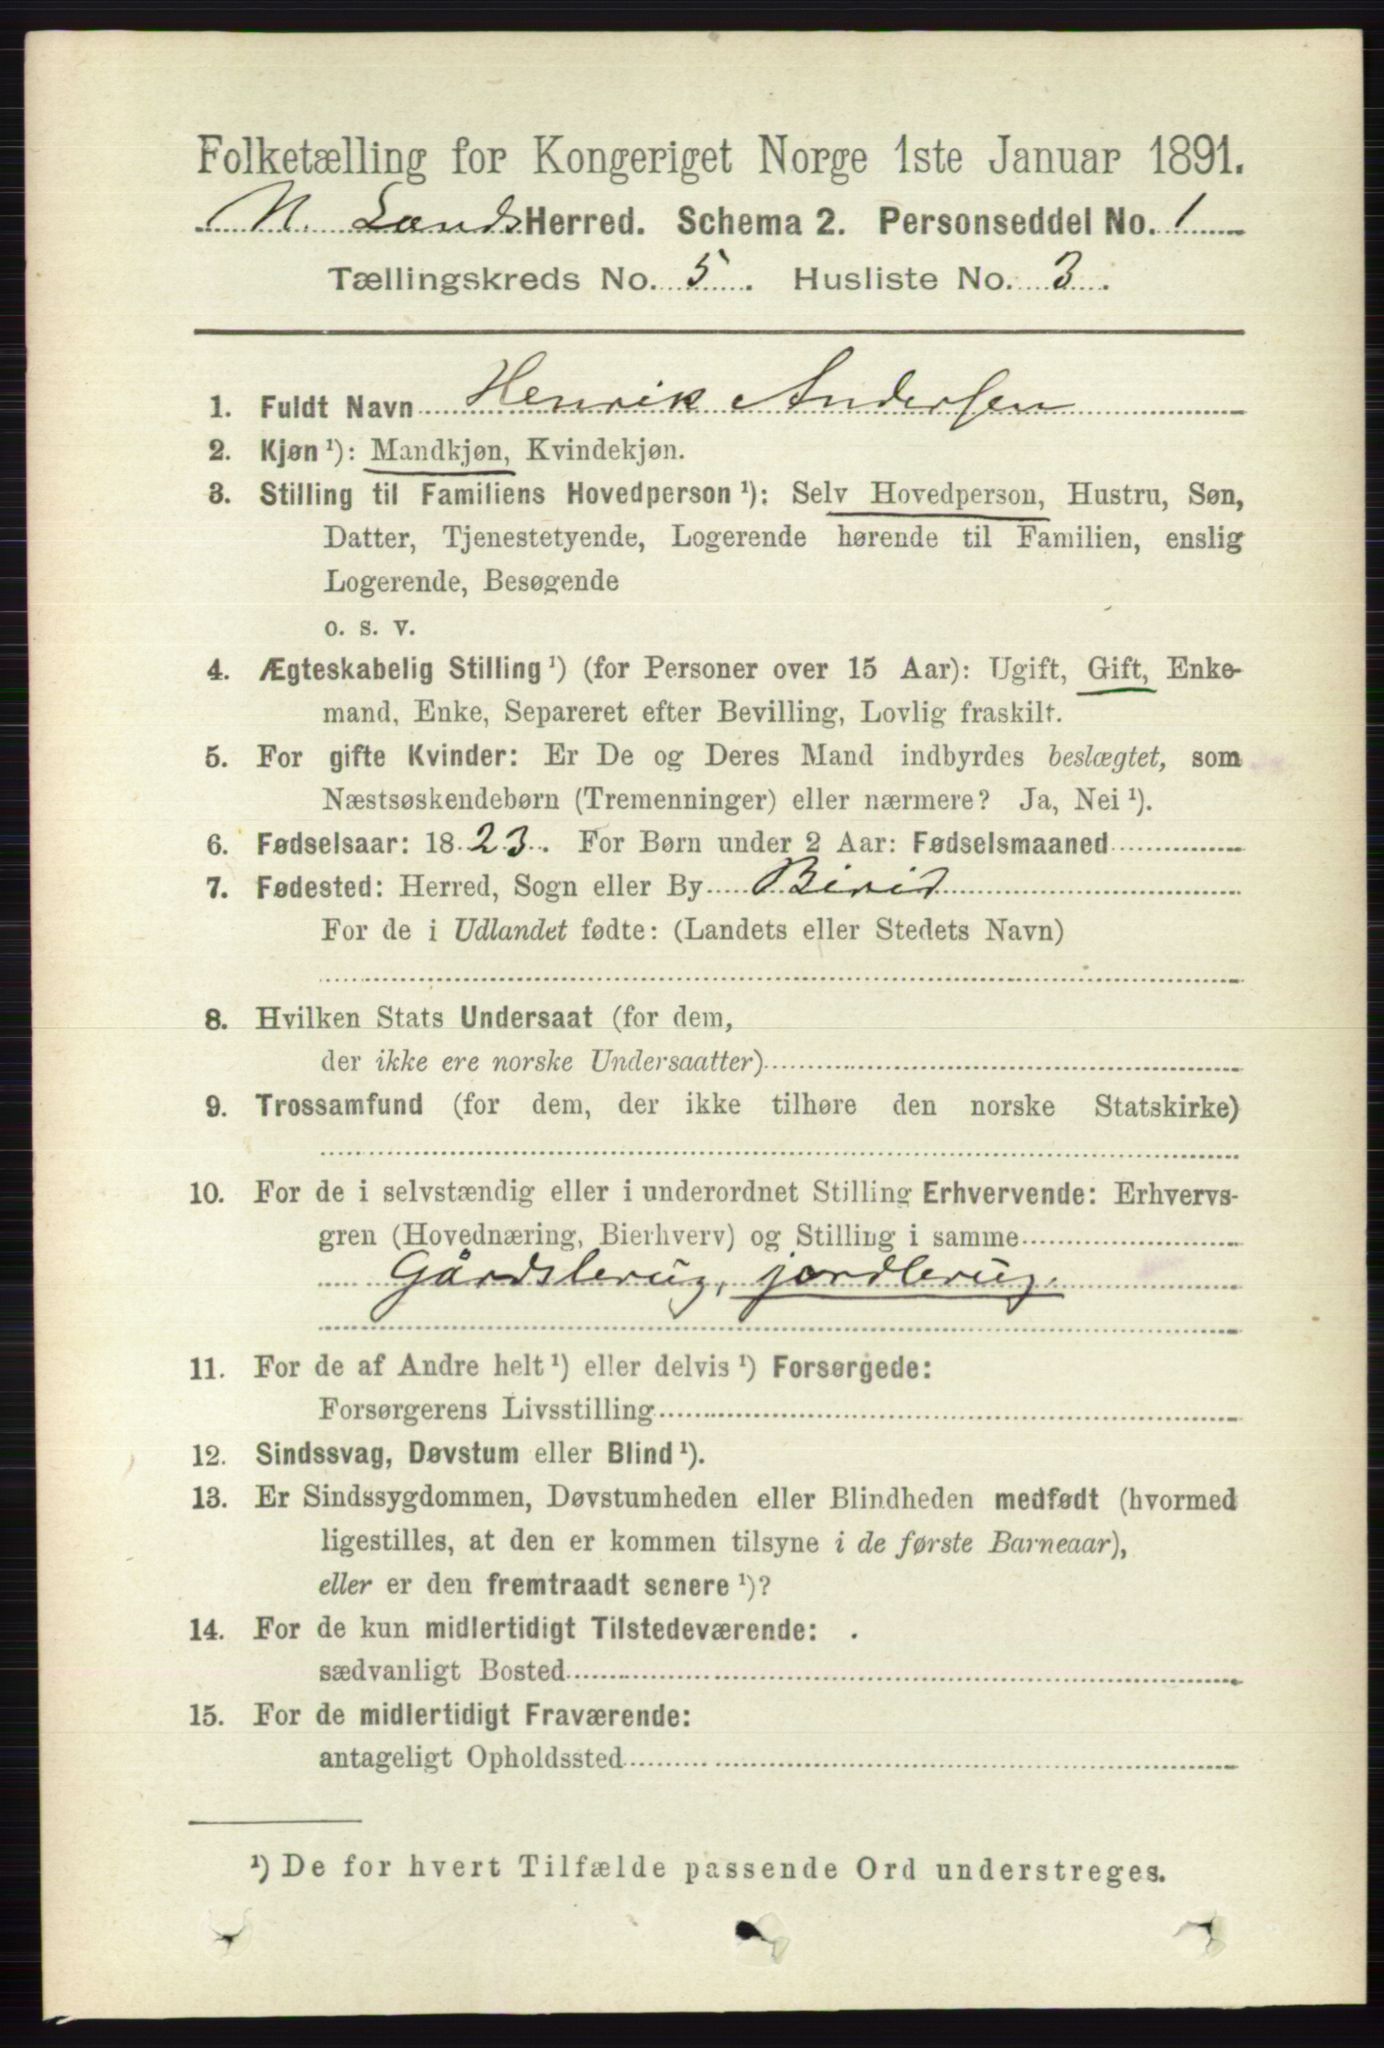 Folketælling for Kongeriget Norge 1ste Januar 1891.
N. Lands Herred. Schema 2. Personseddel No. 1
Tællingskreds No. 5. Husliste No. 3.
1. Fuldt Navn Henrik Andersen
2. Kjøn¹): Mandkjøn, Kvindekjøn.
3. Stilling til Familiens Hovedperson¹): Selv Hovedperson, Hustru, Søn,
Datter, Tjenestetyende, Logerende hørende til Familien, enslig
Logerende, Besøgende
o. s. v.
4. Ægteskabelig Stilling¹) (for Personer over 15 Aar): Ugift, Gift, Enke-
mand, Enke, Separeret efter Bevilling, Lovlig fraskilt.
5. For gifte Kvinder: Er De og Deres Mand indbyrdes beslægtet, som
Næstsøskendebørn (Tremenninger) eller nærmere? Ja, Nei¹).
6. Fødselsaar: 1823. For Børn under 2 Aar: Fødselsmaaned
7. Fødested: Herred, Sogn eller By Birid
For de i Udlandet fødte: (Landets eller Stedets Navn)
8. Hvilken Stats Undersaat (for dem,
der ikke ere norske Undersaatter)
9. Trossamfund (for dem, der ikke tilhøre den norske Statskirke)
10. For de i selvstændig eller i underordnet Stilling Erhvervende: Erhvervs-
gren (Hovednæring, Bierhverv) og Stilling i samme
Gårdsbrug, jordbrug.
11. For de af Andre helt¹) eller delvis¹) Forsørgede:
Forsørgerens Livsstilling
12. Sindssvag, Døvstum eller Blind¹).
13. Er Sindssygdommen, Døvstumheden eller Blindheden medfødt (hvormed
ligestilles, at den er kommen tilsyne i de første Barneaar),
eller er den fremtraadt senere¹)?
14. For de kun midlertidigt Tilstedeværende:
sædvanligt Bosted
15. For de midlertidigt Fraværende:
antageligt Opholdssted
¹) De for hvert Tilfælde passende Ord understreges.